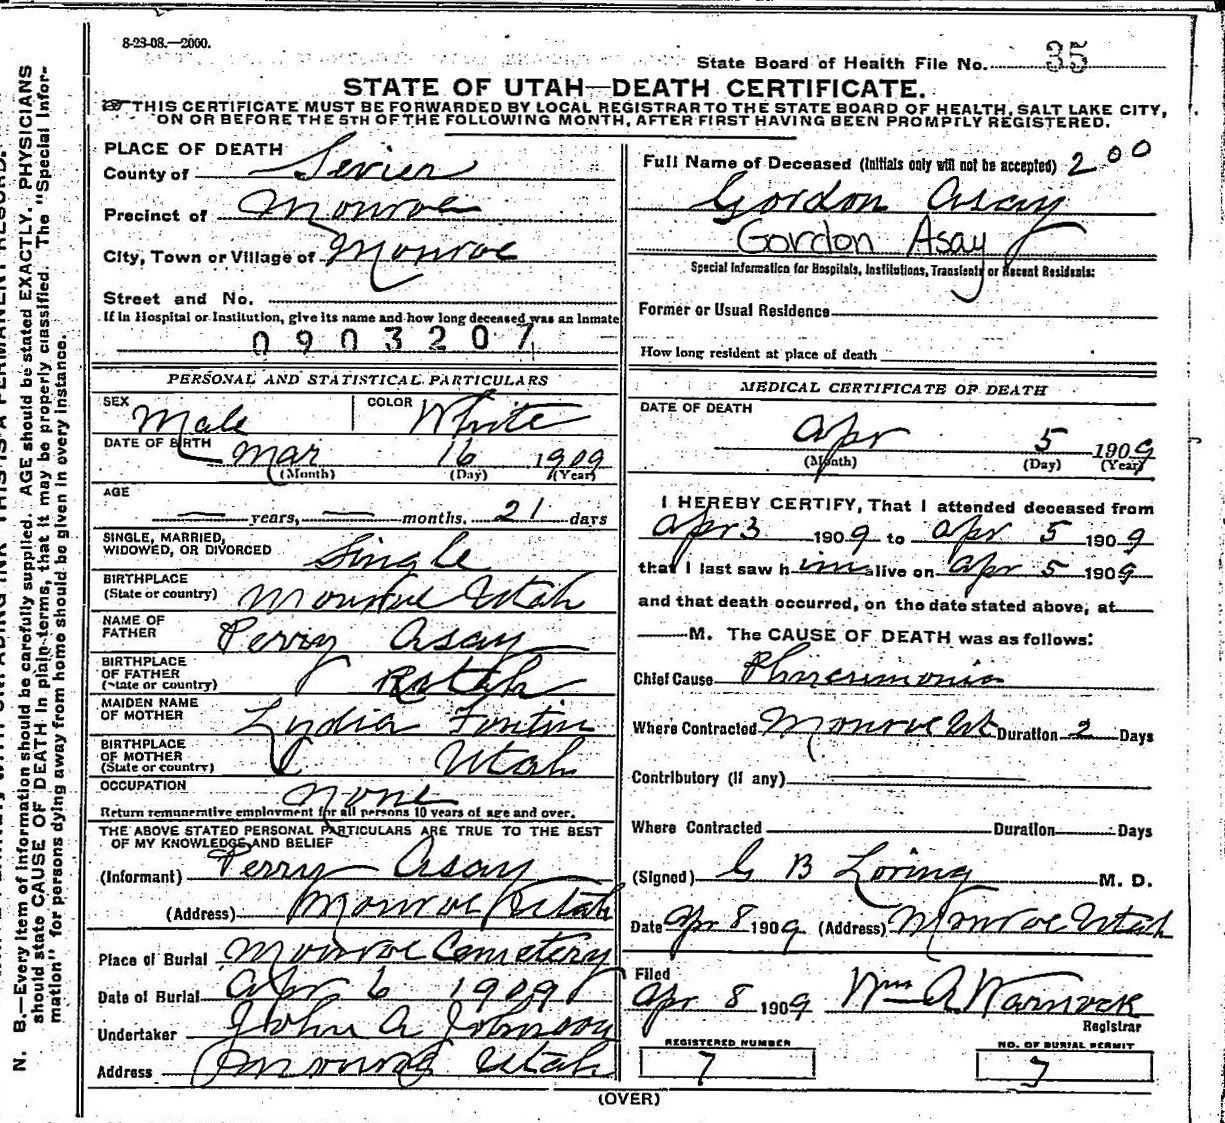 8-23-08.—2000.
State Board of Health File No. 35
STATE OF UTAH—DEATH CERTIFICATE.
THIS CERTIFICATE MUST BE FORWARDED BY LOCAL REGISTRAR TO THE STATE BOARD OF HEALTH, SALT LAKE CITY,
ON OR BEFORE THE 5TH OF THE FOLLOWING MONTH, AFTER FIRST HAVING BEEN PROMPTLY REGISTERED.
PLACE OF DEATH
County of Sevier
Precinct of Monroe
City, Town or Village of Monroe
Street and No.
If in Hospital or Institution, give its name and how long deceased was an inmate
0903207
PERSONAL AND STATISTICAL PARTICULARS
SEX Male COLOR White
DATE OF BIRTH Mar 16 1909
(Month) (Day) (Year)
AGE
— years, — months, 21 days
SINGLE, MARRIED,
WIDOWED, OR DIVORCED Single
BIRTHPLACE
(State or country) Monroe Utah
NAME OF
FATHER Perry Asay
BIRTHPLACE
OF FATHER
(State or country) Utah
MAIDEN NAME
OF MOTHER Lydia
BIRTHPLACE
OF MOTHER
(State or country) Utah
OCCUPATION None
Return remunerative employment for all persons 10 years of age and over.
THE ABOVE STATED PERSONAL PARTICULARS ARE TRUE TO THE BEST
OF MY KNOWLEDGE AND BELIEF
(Informant) Perry Asay
(Address) Monroe Utah
Place of Burial Monroe Cemetery
Date of Burial Apr 6 1909
Undertaker John A Johnson
Address Monroe Utah
Full Name of Deceased (Initials only will not be accepted) 200
Gordon Asay
Gordon Asay
Special Information for Hospitals, Institutions, Transients or Recent Residents:
Former or Usual Residence
How long resident at place of death
MEDICAL CERTIFICATE OF DEATH
DATE OF DEATH
Apr 5 1909
(Month) (Day) (Year)
I HEREBY CERTIFY, That I attended deceased from
Apr 3 1909 to Apr 5 1909
that I last saw him alive on Apr 5 1909
and that death occurred, on the date stated above, at
M. The CAUSE OF DEATH was as follows:
Chief Cause
Where Contracted Monroe Ut Duration 2 Days
Contributory (if any)
Where Contracted Duration Days
(Signed) G B Loring M. D.
Date Apr 8 1909 (Address) Monroe Utah
Filed
Apr 8 1909 Wm A Warnock
Registrar
REGISTERED NUMBER
7
NO. OF BURIAL PERMIT
7
(OVER)
N. B.—Every item of information should be carefully supplied. AGE should be stated EXACTLY. PHYSICIANS
should state CAUSE OF DEATH in plain terms, that it may be properly classified. The "Special Infor-
mation" for persons dying away from home should be given in every instance.